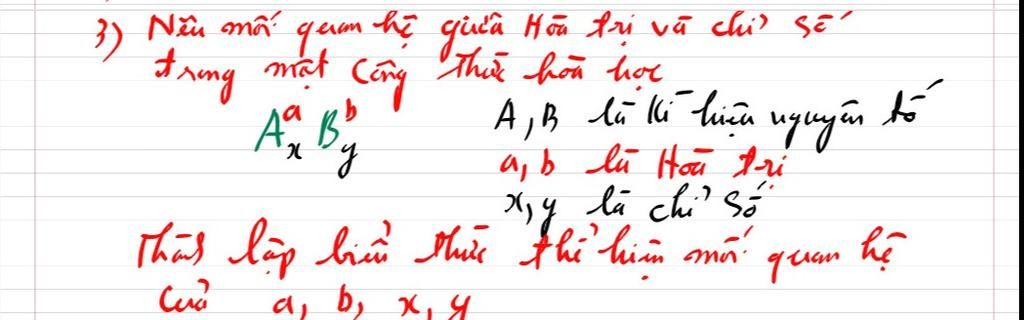 3) Nêu mối quan hệ giữa Hoá trị và chỉ số
trong một công thức hoá học
A^a_x B^b_y
A, B là kí hiệu nguyên tố
a, b là Hoá trị
x, y là chỉ số
lập biểu thức thể hiện mối quan hệ
của a, b, x, y